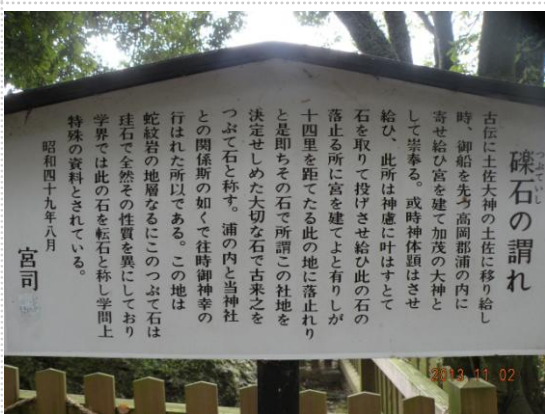 つぶていし
礫石の謂れ
古伝に土佐大神の土佐に移り給し
時、御船を先づ高岡郡浦の内に
寄せ給ひ宮を建て加茂の大神と
して崇奉る。或時神体顕はさせ
給ひ、此所は神慮に叶はすとて
石を取りて投げさせ給ひ此の石の
落止る所に宮を建てよと有りしが
十四里を距てたる此の地に落止れり
と是即ちその石で所謂この社地を
決定せしめた大切な石で古来之を
つぶて石と称す。浦の内と当神社
との関係斯の如くで往時御神幸の
行はれた所以である。この地は
蛇紋岩の地層なるにこのつぶて石は
珪石で全然その性質を異にしており
学界では此の石を転石と称し学問上
特殊の資料とされている。
昭和四十九年八月
宮司
2013 11 02